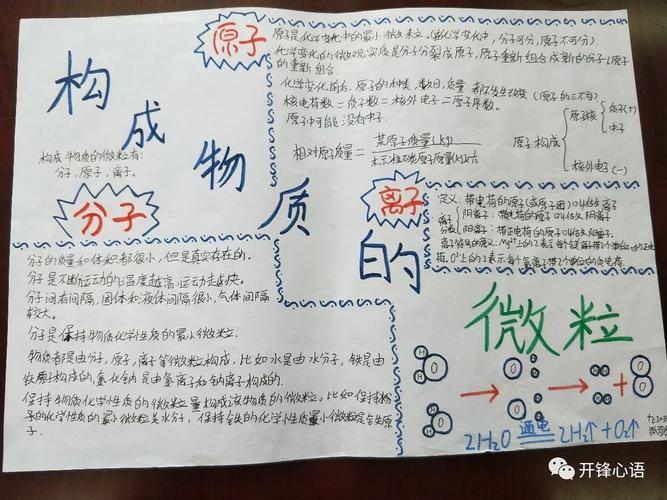 构成物质的
微粒
构成物质的微粒有:
分子,原子,离子。
原子
原子是化学变化中的最小微粒。(在化学变化中,分子可分,原子不可分).
化学变化的微观实质是分子分裂成原子,原子重新组合成新的分子(原子
的重新组合.
化学变化前后,原子的种类,数目,质量都不发生改变(原子的三不变)
核电荷数=质子数=核外电子=原子序数。
原子中可能没有中子.
相对原子质量=
某原子质量(kg)
原子构成
原子核
质子(+)
中子
核外电子(-)
分子
分子的质量和体积都很小,但是真实存在的.
分子是不断运动的温度越高运动越快.
分子间有间隔,固体和液体间隔很小,气体间隔
较大。
分子是保持物质化学性质的最小微粒.
物质都是由分子,原子,离子等微粒构成,比如水是由水分子,铁是由
铁原子构成的,氯化钠是由氯离子和钠离子构成的.
保持物质化学性质的微粒是构成该物质的微粒。比如保持
子的化学性质的最小微粒是水分子,保持铁的化学性质最小微粒是铁原
子.
离子
定义:带电荷的原子(或原子团)叫做离子
离子
分类
阴离子:带负电荷的原子叫做阴离子
阳离子:带正电荷的原子叫做阳离子
2H₂O 通电 2H₂↑+O₂↑
开锋心语